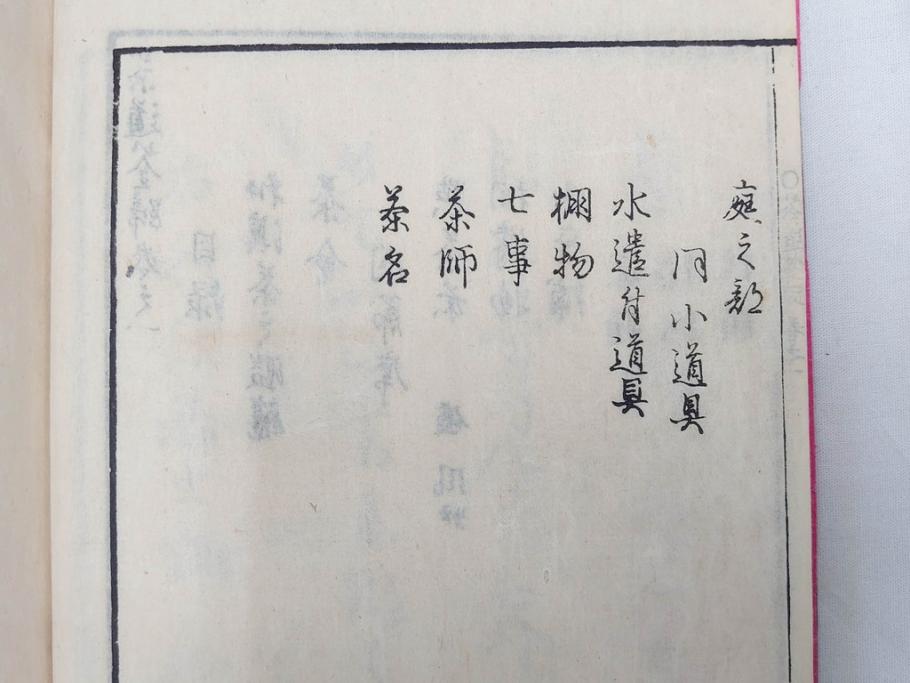 庭之部
同小道具
水遣付道具
棚物
七事
茶師
茶名